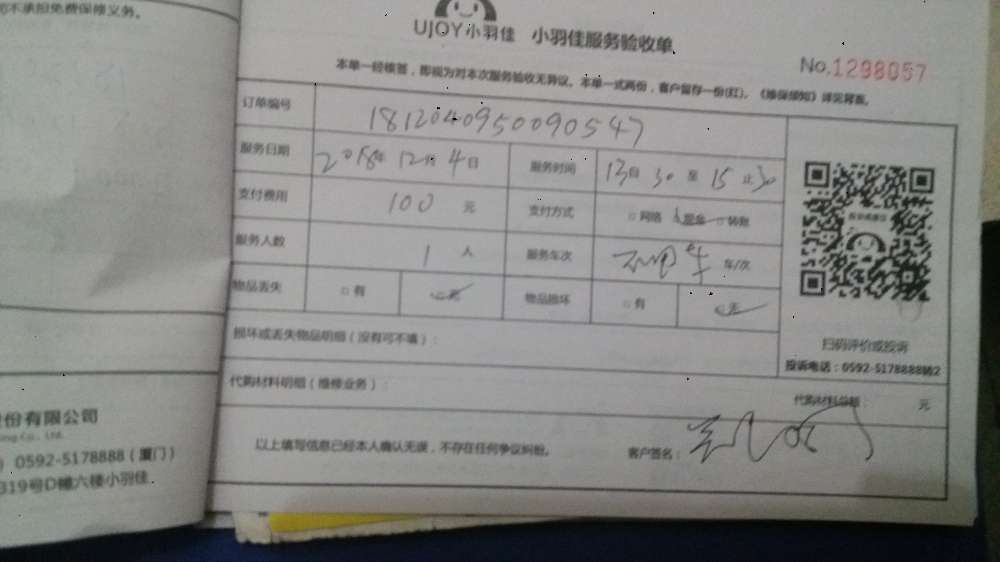 不承担免费保修义务。
UJOY小羽佳 小羽佳服务验收单
No.1298057
本单一经核签，即视为对本次服务验收无异议。本单一式两份，客户留存一份(红)。《维保须知》详见背面。
订单编号 1812040950090547
服务日期 2018年12月4日 服务时间 13点30至15止30
支付费用 100元 支付方式 □网络 现金 □转账
服务人数 1人 服务车次 车/次
物品丢失 □有 无 物品损坏 □有 无
损坏或丢失物品明细（没有可不填）：
扫码评价或投诉
投诉电话：0592-5178888转2
代购材料明细（维修业务）：
代购材料总额： 元
以上填写信息已经本人确认无误，不存在任何争议纠纷。 客户签名：
份有限公司
Co., Ltd.
0592-5178888（厦门）
319号D幢六楼小羽佳